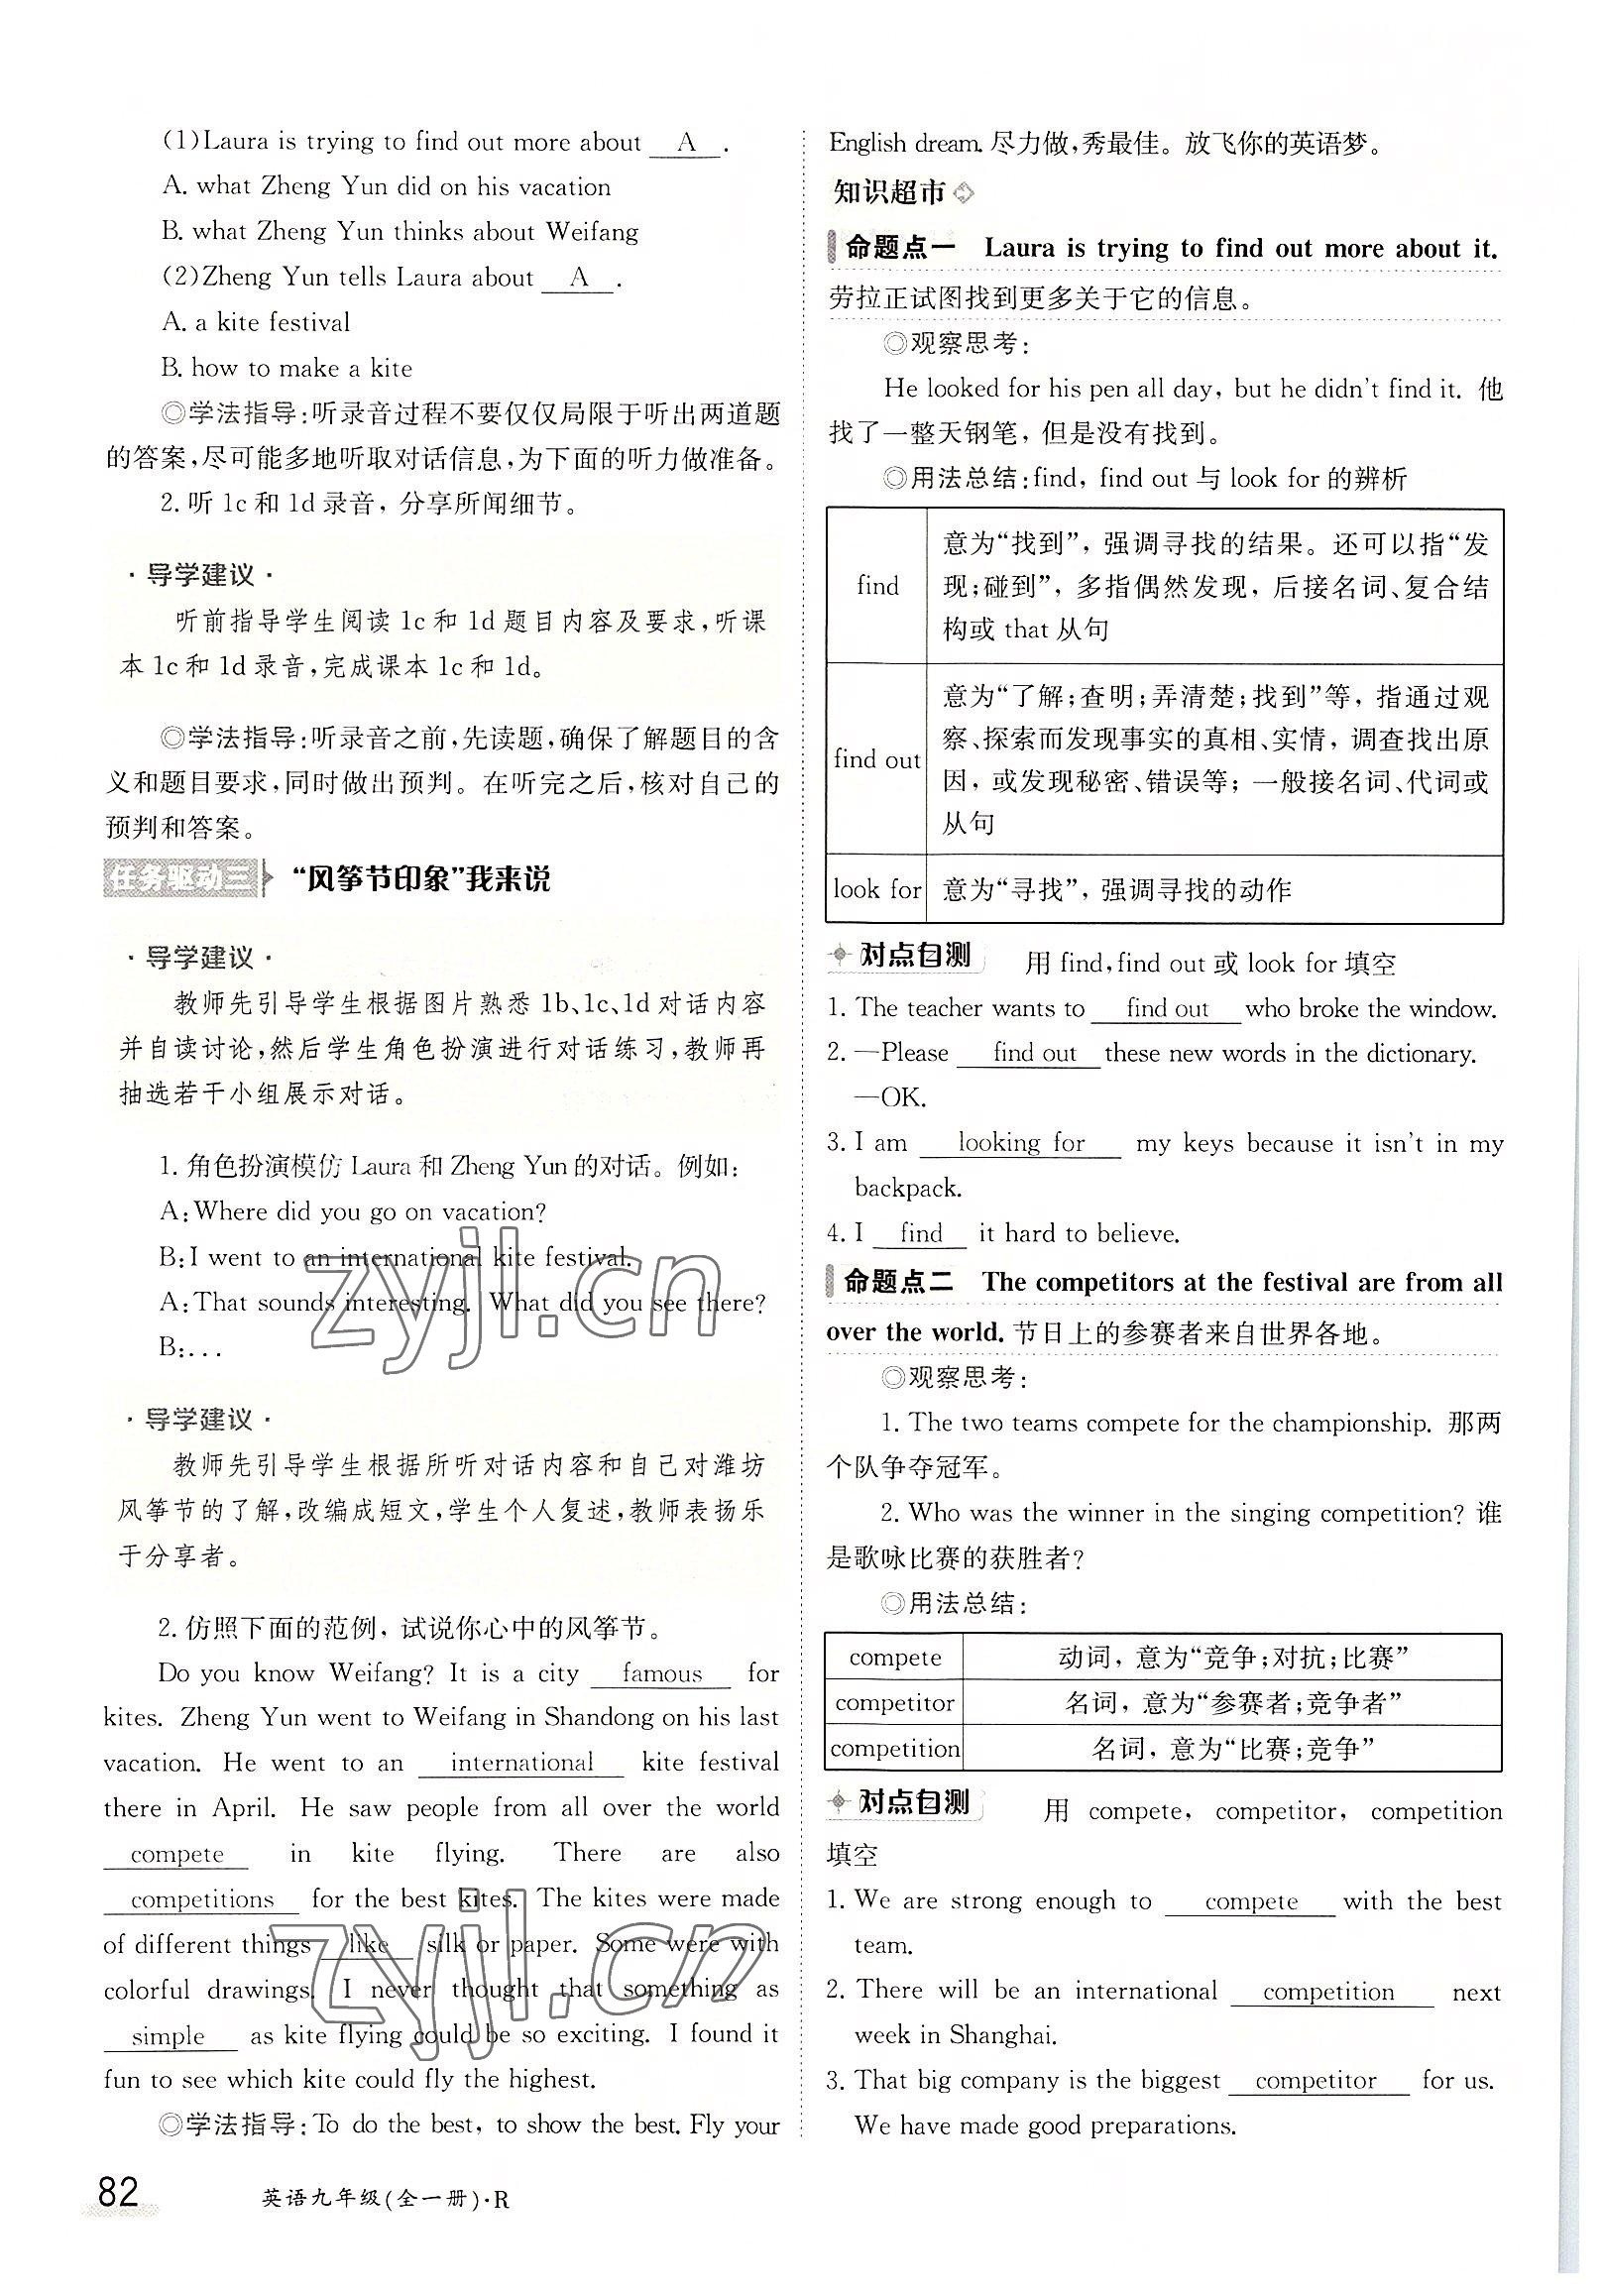 (1)Laura is trying to find out more about A .
A. what Zheng Yun did on his vacation
B. what Zheng Yun thinks about Weifang
(2)Zheng Yun tells Laura about A .
A. a kite festival
B. how to make a kite
◎学法指导:听录音过程不要仅仅局限于听出两道题
的答案,尽可能多地听取对话信息,为下面的听力做准备。
2. 听 1c 和 1d 录音，分享所闻细节。
· 导学建议 ·
听前指导学生阅读 1c 和 1d 题目内容及要求,听课
本 1c 和 1d 录音,完成课本 1c 和 1d。
◎学法指导:听录音之前,先读题,确保了解题目的含
义和题目要求,同时做出预判。在听完之后,核对自己的
预判和答案。
任务驱动三 “风筝节印象”我来说
· 导学建议 ·
教师先引导学生根据图片熟悉 1b、1c、1d 对话内容
并自读讨论,然后学生角色扮演进行对话练习,教师再
抽选若干小组展示对话。
1. 角色扮演模仿 Laura 和 Zheng Yun 的对话。例如:
A:Where did you go on vacation?
B:I went to an international kite festival.
A:That sounds interesting. What did you see there?
B:...
· 导学建议 ·
教师先引导学生根据所听对话内容和自己对潍坊
风筝节的了解,改编成短文,学生个人复述,教师表扬乐
于分享者。
2. 仿照下面的范例，试说你心中的风筝节。
Do you know Weifang? It is a city famous for
kites. Zheng Yun went to Weifang in Shandong on his last
vacation. He went to an international kite festival
there in April. He saw people from all over the world
compete in kite flying. There are also
competitions for the best kites. The kites were made
of different things like silk or paper. Some were with
colorful drawings. I never thought that something as
simple as kite flying could be so exciting. I found it
fun to see which kite could fly the highest.
◎学法指导:To do the best, to show the best. Fly your
82 英语九年级(全一册)·R
English dream. 尽力做,秀最佳。放飞你的英语梦。
知识超市
命题点一 Laura is trying to find out more about it.
劳拉正试图找到更多关于它的信息。
◎观察思考:
He looked for his pen all day, but he didn't find it. 他
找了一整天钢笔，但是没有找到。
◎用法总结:find, find out 与 look for 的辨析
find 意为“找到”，强调寻找的结果。还可以指“发
现;碰到”，多指偶然发现，后接名词、复合结
构或 that 从句
find out 意为“了解;查明;弄清楚;找到”等，指通过观
察、探索而发现事实的真相、实情，调查找出原
因，或发现秘密、错误等；一般接名词、代词或
从句
look for 意为“寻找”，强调寻找的动作
对点自测 用 find,find out 或 look for 填空
1. The teacher wants to find out who broke the window.
2. —Please find out these new words in the dictionary.
—OK.
3. I am looking for my keys because it isn't in my
backpack.
4. I find it hard to believe.
命题点二 The competitors at the festival are from all
over the world. 节日上的参赛者来自世界各地。
◎观察思考:
1. The two teams compete for the championship. 那两
个队争夺冠军。
2. Who was the winner in the singing competition? 谁
是歌咏比赛的获胜者?
◎用法总结:
compete 动词，意为“竞争;对抗;比赛”
competitor 名词，意为“参赛者;竞争者”
competition 名词，意为“比赛;竞争”
对点自测 用 compete, competitor, competition
填空
1. We are strong enough to compete with the best
team.
2. There will be an international competition next
week in Shanghai.
3. That big company is the biggest competitor for us.
We have made good preparations.
zyjl.cn
zyjl.cn